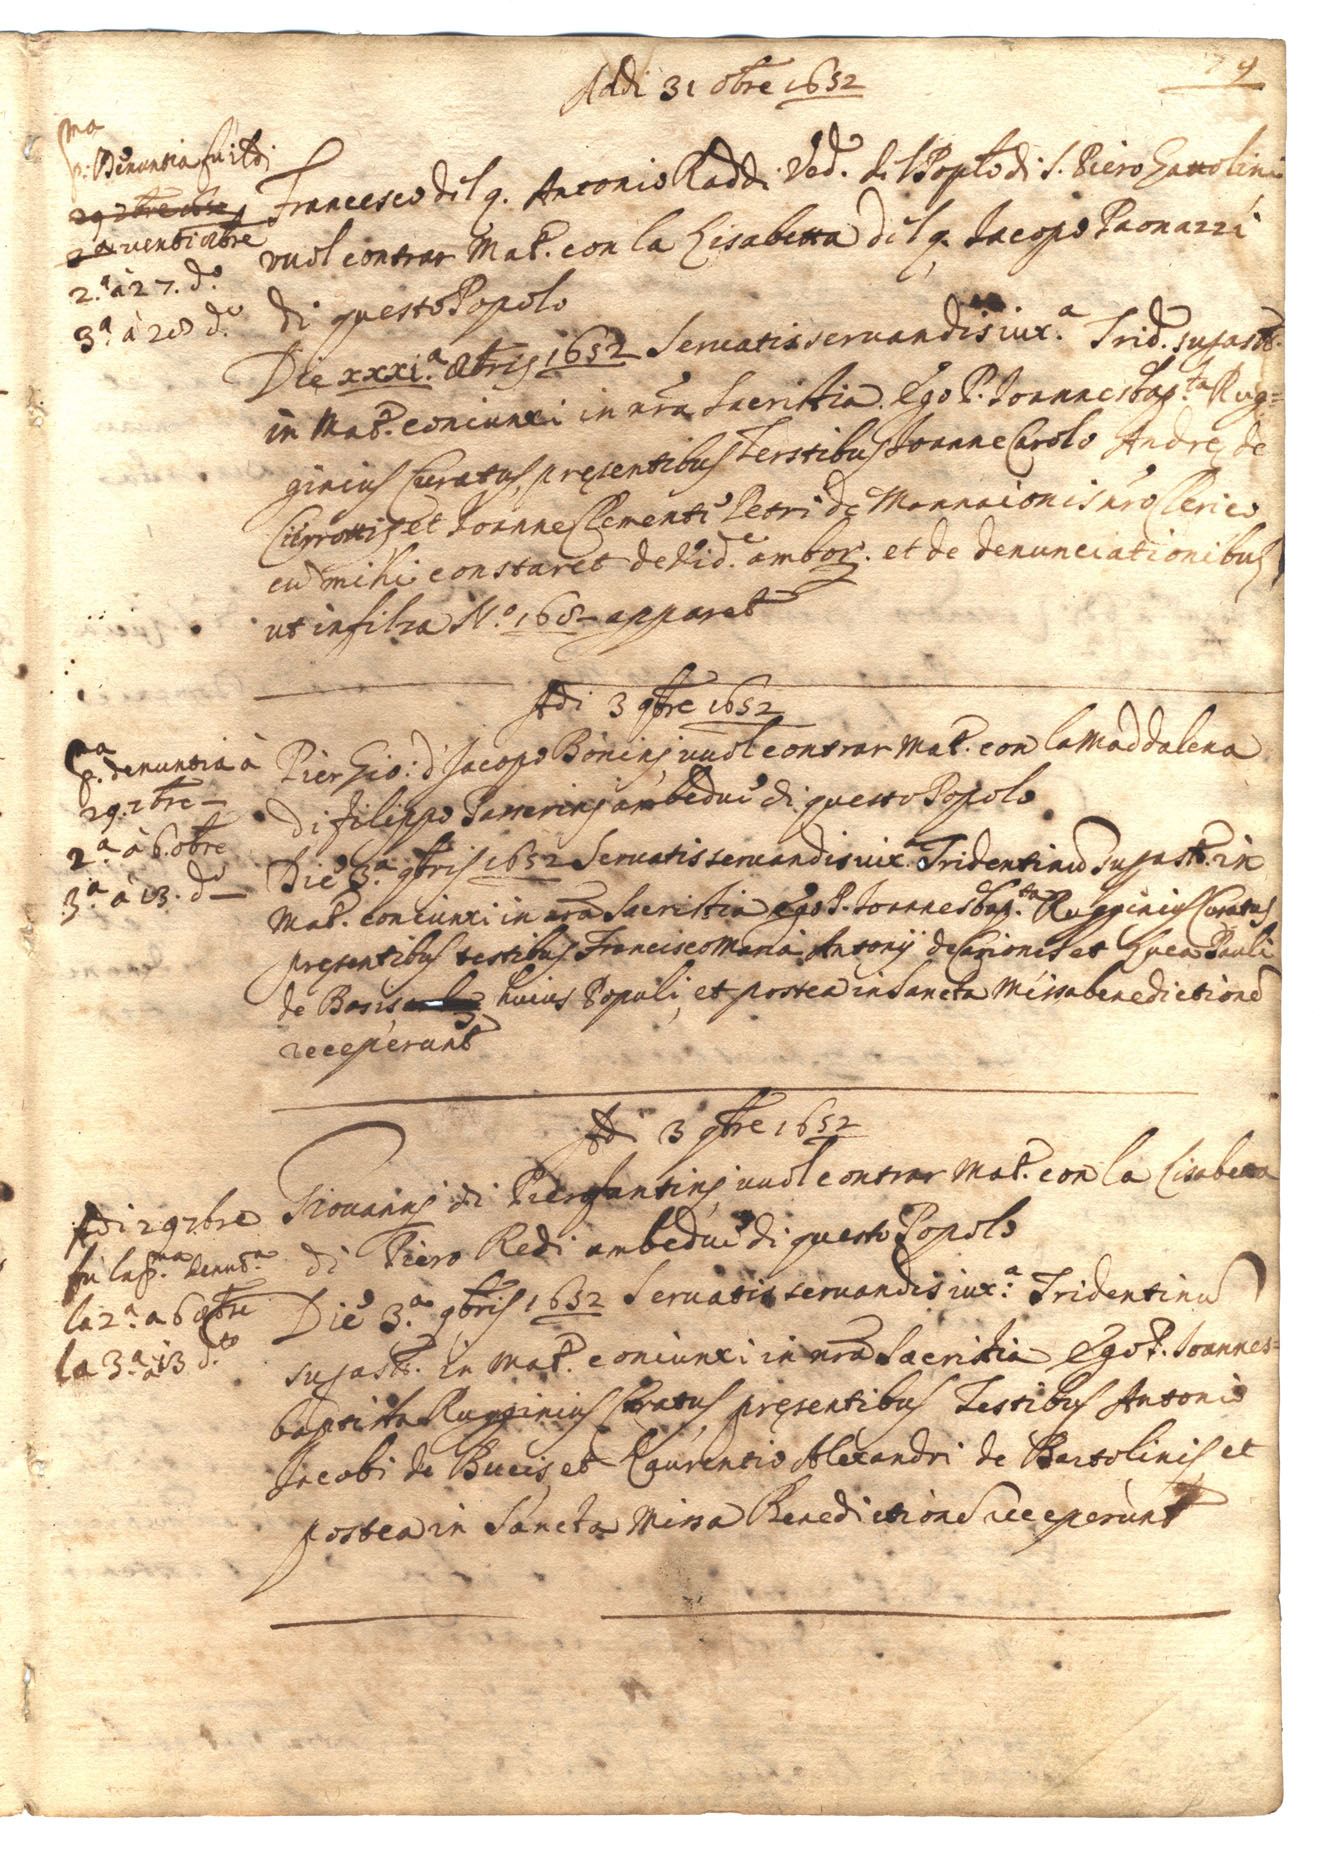 Addi 31 8bre 1652
79
p.ma Denuntia fu il dì
29 7bre 1652
2a venti 8bre
2.a à 27. d.o
3a. à 28 d.o
Francesco del q. Antonio Raddi Ved.o del Popto di S. Piero Gattolini
vuol contrar Mat.o con la Lisabetta del q. Jacopo Paonazzi
di questo Popolo
Die xxxi.a 8bris 1652 Servatis servandis iux.a Trid. sugastt.
in Mat.o coniunxi in nra Sacristia. Ego P. Joannesbap.ta Rug=
ginius Curatus, presentibus Terstibus Joanne Carolo Andreę de
et Joanne Clemente Petri de Mannaionis nro Clerico
cū mihi constaret de Vid.e ambor. et de denunciationibus
ut in filza N.o 168 apparet
Adi 3 9bre 1652
p.ma denuntia à
29. 7bre —
2.a à 6. 8bre
3.a à 13. d.o —
Pier Gio: d'Jacopo Bonini vuol contrar Mat.o con la Maddalena
di Filippo Passerini ambedue di questo Popolo
Die 3.a 9bris 1652 Servatis servandis iux.a Tridentinū sugastt. in
Mat.o coniunxi in nra Sacristia ego P. Joannesbap.ta Rugginius Curatus
presentibus testibus Francisco Maria Antonij de et Luca Pauli
de huius Populi, et postea in Sancta Missa benedictionē
receperunt
Adi 3 9bre 1652
Adi 29 7bre
fu la p.ma denut.a
la 2.a a 6 8bre
la 3.a à 13 d.to
Giovanni di Piero Santini vuol contrar Mat.o con la Lisabetta
di Piero Redi ambedue di questo Popolo
Die 3.a 9bris 1652 Servatis servandis iux.a Tridentinū
sugastt. in Mat.o coniunxi in nra Sacristia Ego P. Joannes=
baptista Rugginius Curatus, presentibus Testibus Antonio
Jacobi de Buccis, et Laurentio Alexandri de Bartolinis et
postea in Sancta Missa Benedictionē receperunt